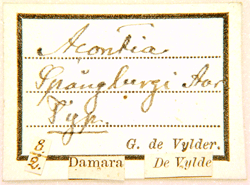 Acontia
Spångbergi Aur
Typ.
G. de Vylder.
8/2.
Damara De Vylde